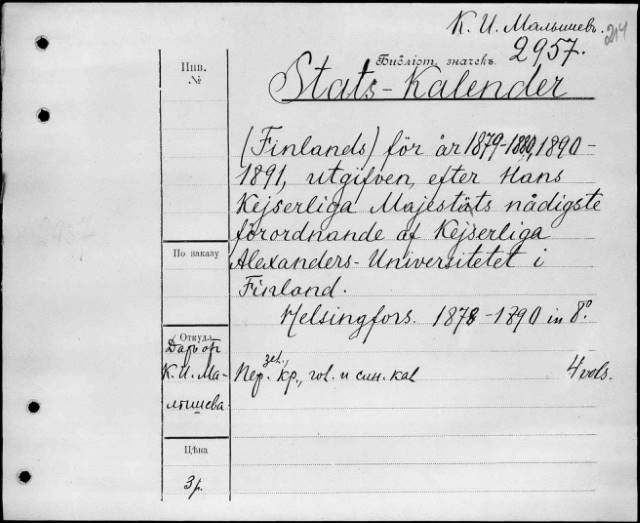 К. И. Малышевъ.
214
Библіот. значекъ
2957.
Инв.
№
Stats-Kalender
(Finlands) för år 1879-1880, 1890-
1891, utgifven, efter Hans
Kejserliga Majestäts nådigste
förordnande af Kejserliga
По заказу
Alexanders-Universitetet i
Finland.
Helsingfors. 1878-1890 in 8.º
Откуда
Даръ от
К. И. Ма-
лышева.
зел.,
Пер. кр., гол. и син. кал
4 vols.
Цѣна
3 р.